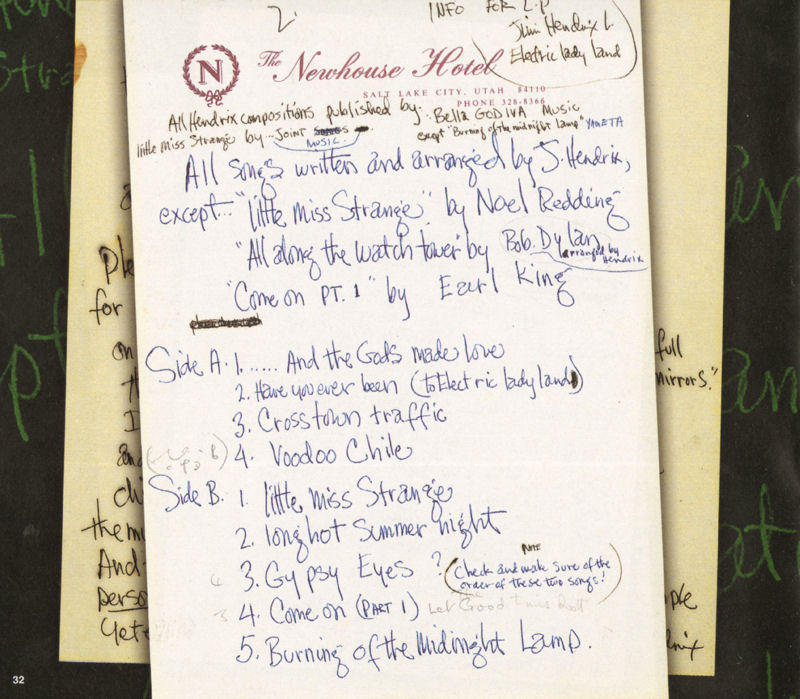 2.
INFO FOR L.P
Jimi Hendrix
Electric lady land
N
The Newhouse Hotel
SALT LAKE CITY, UTAH 84110
PHONE 328-8366
All Hendrix compositions published by - Bella GODIVA Music
except "Burning of the midnight lamp" YAMETA
little Miss Strange by - JOINT
MUSIC
All songs written and arranged by J. Hendrix,
except... "little miss Strange" by Noel Redding
"All along the watch tower" by Bob. Dylan
arranged by Hendrix
"Come on PT. 1" by Earl King
Side A: 1. ..... And the Gods made love
2. Have you ever been (to Electric lady land)
3. Crosstown traffic
4. Voodoo Chile
Side B. 1. little miss Strange
2. long hot Summer night
3. Gypsy Eyes ?
NOTE
(Check and make sure of the
order of these two songs!)
4. Come on (PART 1) Let Good times Roll
5. Burning of the Midinght Lamp.
for
on
full
mirrors."
I
and
the mu
And
perso
ple
yet
32